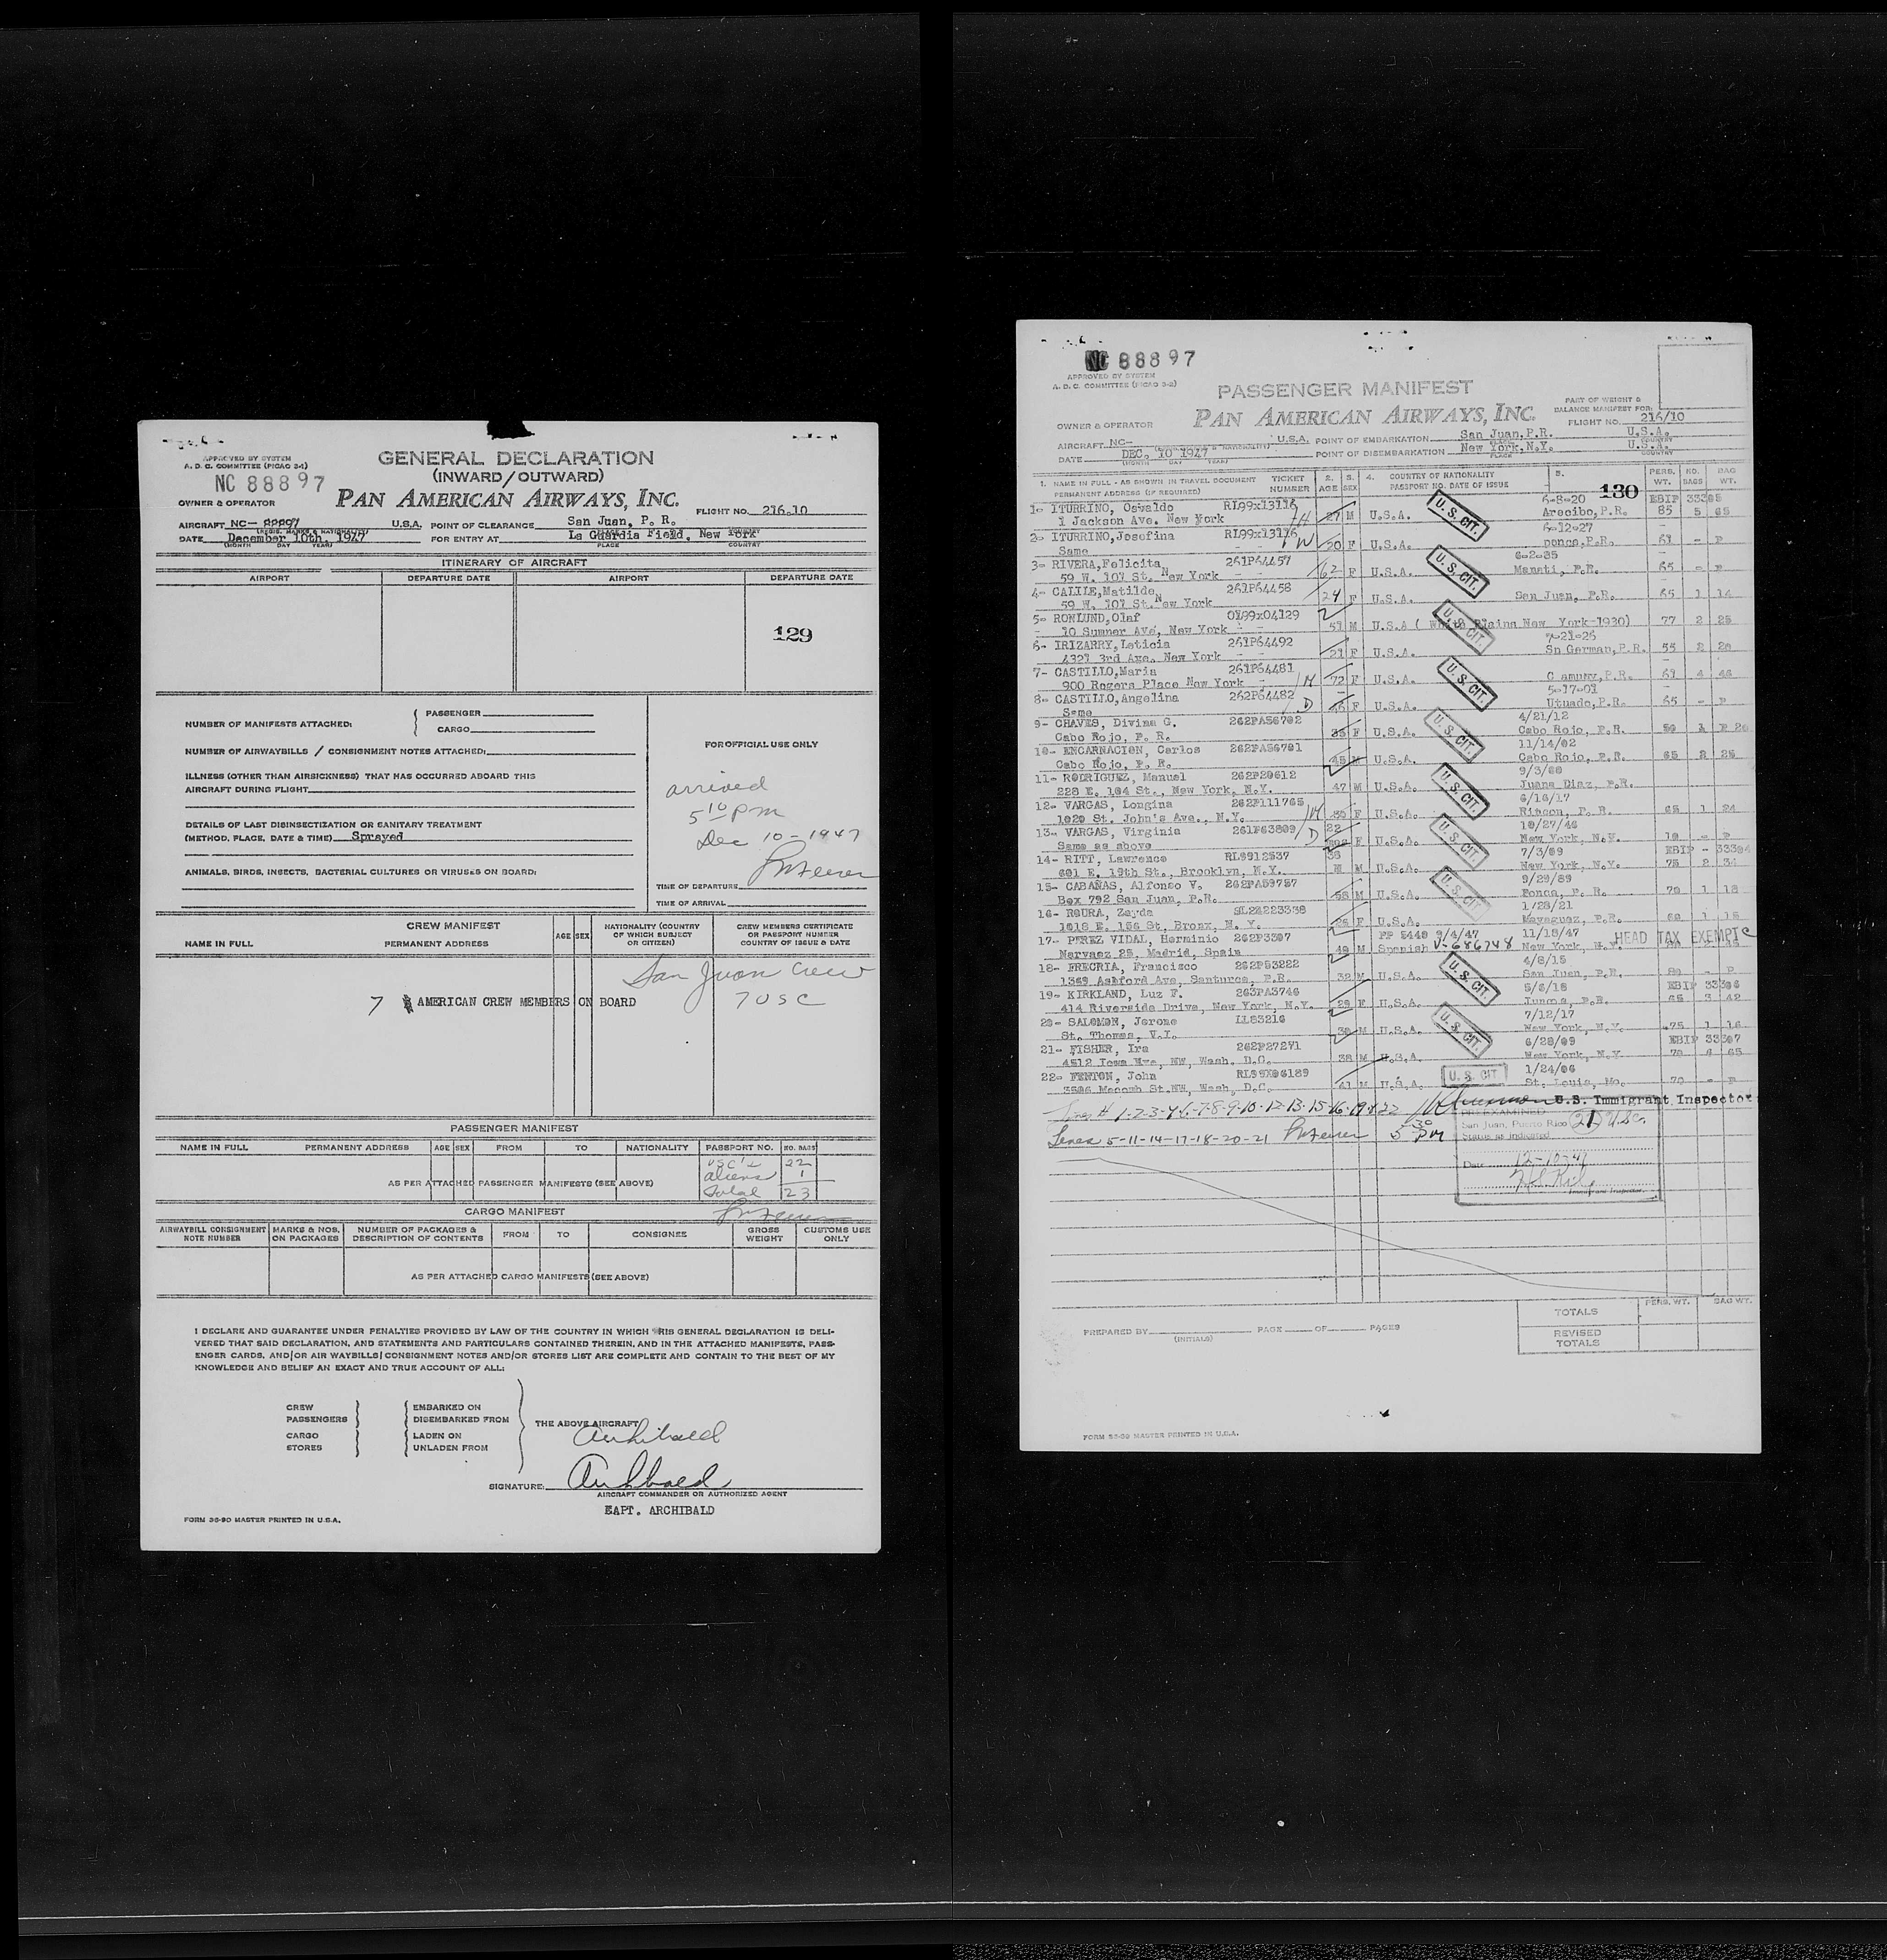 APPROVED BY SYSTEM
A. D. C. COMMITTEE (PICAO 3-1)
NC 88897
GENERAL DECLARATION
(INWARD/OUTWARD)
OWNER & OPERATOR PAN AMERICAN AIRWAYS, INC. FLIGHT NO. 216-10
AIRCRAFT NC- U.S.A. POINT OF CLEARANCE San Juan, P. R.
(REGIS. MARKS & NATIONALITY) PLACE COUNTRY
DATE December 10th, 1947 FOR ENTRY AT La Guardia Field, New York
(MONTH DAY YEAR) PLACE COUNTRY
ITINERARY OF AIRCRAFT
AIRPORT DEPARTURE DATE AIRPORT DEPARTURE DATE
129
NUMBER OF MANIFESTS ATTACHED: PASSENGER
CARGO
NUMBER OF AIRWAYBILLS / CONSIGNMENT NOTES ATTACHED:
FOR OFFICIAL USE ONLY
ILLNESS (OTHER THAN AIRSICKNESS) THAT HAS OCCURRED ABOARD THIS
AIRCRAFT DURING FLIGHT
arrived
5 10 pm
Dec 10-1947
DETAILS OF LAST DISINSECTIZATION OR SANITARY TREATMENT
(METHOD, PLACE, DATE & TIME) Sprayed
ANIMALS, BIRDS, INSECTS, BACTERIAL CULTURES OR VIRUSES ON BOARD:
TIME OF DEPARTURE
TIME OF ARRIVAL
CREW MANIFEST
NAME IN FULL PERMANENT ADDRESS AGE SEX NATIONALITY (COUNTRY OF WHICH SUBJECT OR CITIZEN) CREW MEMBERS CERTIFICATE OR PASSPORT NUMBER COUNTRY OF ISSUE & DATE
San Juan Crew
7 AMERICAN CREW MEMBERS ON BOARD 7 USC
PASSENGER MANIFEST
NAME IN FULL PERMANENT ADDRESS AGE SEX FROM TO NATIONALITY PASSPORT NO. NO. BAGS
USC's 22
aliens 1
AS PER ATTACHED PASSENGER MANIFESTS (SEE ABOVE)
Total 23
CARGO MANIFEST
AIRWAYBILL CONSIGNMENT NOTE NUMBER MARKS & NOS. ON PACKAGES NUMBER OF PACKAGES & DESCRIPTION OF CONTENTS FROM TO CONSIGNEE GROSS WEIGHT CUSTOMS USE ONLY
AS PER ATTACHED CARGO MANIFESTS (SEE ABOVE)
I DECLARE AND GUARANTEE UNDER PENALTIES PROVIDED BY LAW OF THE COUNTRY IN WHICH THIS GENERAL DECLARATION IS DELI-
VERED THAT SAID DECLARATION, AND STATEMENTS AND PARTICULARS CONTAINED THEREIN, AND IN THE ATTACHED MANIFESTS, PASS-
ENGER CARDS, AND/OR AIR WAYBILLS/CONSIGNMENT NOTES AND/OR STORES LIST ARE COMPLETE AND CONTAIN TO THE BEST OF MY
KNOWLEDGE AND BELIEF AN EXACT AND TRUE ACCOUNT OF ALL:
CREW EMBARKED ON
PASSENGERS DISEMBARKED FROM
THE ABOVE AIRCRAFT
CARGO LADEN ON
STORES UNLADEN FROM
Archibald
SIGNATURE: Archibald
AIRCRAFT COMMANDER OR AUTHORIZED AGENT
EAPT. ARCHIBALD
FORM 36-90 MASTER PRINTED IN U.S.A.
NC 88897
APPROVED BY SYSTEM
A. D. C. COMMITTEE (PICAO 3-2)
PASSENGER MANIFEST
PART OF WEIGHT &
BALANCE MANIFEST FOR:
OWNER & OPERATOR PAN AMERICAN AIRWAYS, INC. FLIGHT NO. 216/10
AIRCRAFT NC- U.S.A. POINT OF EMBARKATION San Juan, P.R. U.S.A.
DATE DEC. 10 1947 POINT OF DISEMBARKATION New York, N.Y. U.S.A.
(MONTH DAY YEAR) PLACE COUNTRY
1. NAME IN FULL - AS SHOWN IN TRAVEL DOCUMENT TICKET NUMBER 2. AGE 3. SEX 4. COUNTRY OF NATIONALITY PASSPORT NO. DATE OF ISSUE 5. PERS. WT. NO. BAGS BAG WT.
PERMANENT ADDRESS (IF REQUIRED)
130
1- ITURRINO, Oswaldo RL99x13116 6-8-20 EBIF 33305
1 Jackson Ave. New York H 27 M U.S.A. Arecibo, P.R. 85 5 65
2- ITURRINO, Josefina RL99x13116 6-12-27
Same W 20 F U.S.A. ponce, P.R. 61 - P
3- RIVERA, Felicita 261P64457 6-2-85
59 W. 107 St. New York 62 F U.S.A. Manati, P.R. 65 - P
4- CALILE, Matilde 261P64458
59 W. 107 St. New York 24 F U.S.A. San Juan, P.R. 65 1 14
5- RONLUND, Olaf 0199x04129
10 Sumner Ave, New York 51 M U.S.A ( White Plains New York-1930) 77 2 25
6- IRIZARRY, Leticia 261P64492 7-21-26
4327 3rd Ave. New York 21 F U.S.A. Sn German, P.R. 55 2 20
7- CASTILLO, Maria 261P64481
900 Rogers Place New York M 72 F U.S.A. Camuny, P.R. 61 4 46
8- CASTILLO, Angelina 262P64482 5-17-01
Same D 46 F U.S.A. Utuado, P.R. 65 - P
9- CHAVES, Divina G. 262PA56702 4/21/12
Cabo Rojo, P. R. 35 F U.S.A. Cabo Rojo, P. R.
10- ENCARNACION, Carlos 262PA56701 11/14/02
Cabo Rojo, P. R. 45 M U.S.A. Cabo Rojo, P. R. 65 2 25
11- RODRIGUEZ, Manuel 262P20612 9/3/00
228 E. 104 St., New York, N.Y. 47 M U.S.A. Juana Diaz, P.R.
12- VARGAS, Longina 262P111765 6/16/17
1020 St. John's Ave., N.Y. M 30 F U.S.A. Rincon, P. R. 65 1 24
13- VARGAS, Virginia 261F63809 10/27/46
Same as above D F U.S.A. New York, N.Y. 10 - P
14- RITT, Lawrence RL9912537 38 7/3/09 EBIF - 33304
601 E. 19th St., Brooklyn, N.Y. M U.S.A. New York, N.Y. 75 2 34
15- CABAÑAS, Alfonso V. 262PA59757 9/29/89
Box 792 San Juan, P.R. 58 M U.S.A. Ponce, P. R. 70 1 18
16- ROURA, Zayda SL24223338 1/28/21
1018 E. 156 St, Bronx, N. Y. 26 F U.S.A. Mayaguez, P.R. 60 1 15
17- PEREZ VIDAL, Herminio 262P3307 PP 5440 9/4/47 11/18/47 HEAD TAX EXEMPT
Narvaez 25, Madrid, Spain 49 M Spanish V-686748 New York, N.Y.
18- FRECRIA, Francisco 262P53222 4/8/15
1369 Ashford Ave, Santurce, P.R. 32 M U.S.A. San Juan, P.R. 80 - P
19- KIRKLAND, Luz F. 263PA3746 5/6/18 EBIF 33306
414 Riverside Drive, New York, N.Y. 29 F U.S.A. Juncos, P.R. 65 3 42
20- SALOMON, Jerome LL83216 7/12/17
St. Thomas, V.I. 30 M U.S.A. New York, N.Y. 75 1 16
21- FISHER, Ira 262P27271 6/28/09 EBIF 33307
4512 Iowa Ave, NW, Wash. D.C. 38 M U.S.A New York, N.Y 70 6 65
22- FENTON, John RL99X06189 1/24/06
3506 Macomb St.NW, Wash, D.C. 41 M U.S.A. St. Louis, Mo. 70 - P
U.S. CIT.
U.S. CIT.
U.S. CIT.
U.S. CIT.
U.S. CIT.
U.S. CIT.
U.S. CIT.
U.S. CIT.
U.S. CIT.
U.S. CIT.
U.S. CIT.
Lines # 1-2-3-4-6-7-8-9-10-12-13-15-16-19 & 22 U.S. Immigrant Inspector
Lines 5-11-14-17-18-20-21 5 30 pm
PREEXAMINED
San Juan, Puerto Rico 21 U.S.C.
Status as indicated
Date 12-10-47
Immigrant Inspector.
TOTALS PERS. WT. BAG WT.
PREPARED BY (INITIALS) PAGE OF PAGES
REVISED TOTALS
FORM 36-90 MASTER PRINTED IN U.S.A.